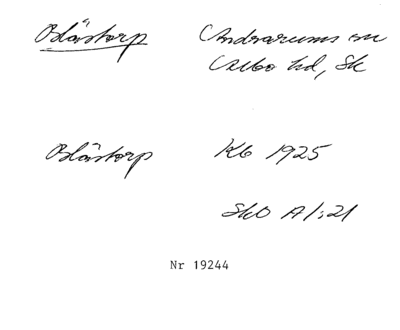 Blåstorp Andrarums sn
Albo hd, Sk
Blåstorp Kb 1925
SkO A1:21
Nr 19244